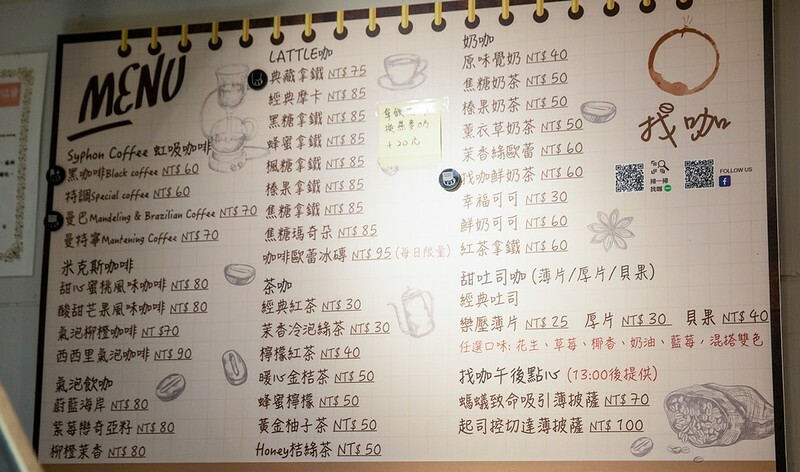 MENU
Syphon Coffee 虹吸咖啡
黑咖啡Black coffee NT$60
特調Special coffee NT$60
曼巴Mandeling & Brazilian Coffee NT$70
曼特寧Mantening Coffee NT$70
米克斯咖啡
甜心蜜桃風味咖啡 NT$80
酸甜芒果風味咖啡 NT$80
氣泡柳橙咖啡 NT$70
西西里氣泡咖啡 NT$90
氣泡飲咖
蔚藍海岸 NT$80
紫莓戀奇亞籽 NT$80
柳橙茉香 NT$80
LATTLE咖
典藏拿鐵 NT$75
經典摩卡 NT$85
黑糖拿鐵 NT$85
蜂蜜拿鐵 NT$85
楓糖拿鐵 NT$85
榛果拿鐵 NT$85
焦糖拿鐵 NT$85
焦糖瑪奇朵 NT$85
咖啡歐蕾冰磚 NT$95 (每日限量)
茶咖
經典紅茶 NT$30
茉香冷泡綠茶 NT$30
檸檬紅茶 NT$40
暖心金桔茶 NT$50
蜂蜜檸檬 NT$50
黃金柚子茶 NT$50
Honey桔綠茶 NT$50
換燕麥奶
+20元
奶咖
原味覺奶 NT$40
焦糖奶茶 NT$50
榛果奶茶 NT$50
薰衣草奶茶 NT$50
茉香綠歐蕾 NT$60
找咖鮮奶茶 NT$60
幸福可可 NT$30
鮮奶可可 NT$60
紅茶拿鐵 NT$60
甜吐司咖 (薄片/厚片/貝果)
經典吐司
樂壓薄片 NT$25 厚片 NT$30 貝果 NT$40
任選口味: 花生、草莓、椰香、奶油、藍莓，混搭雙色
找咖午後點心 (13:00後提供)
螞蟻致命吸引薄披薩 NT$70
起司控切達薄披薩 NT$100
找咖
掃一掃
找咖
FOLLOW US